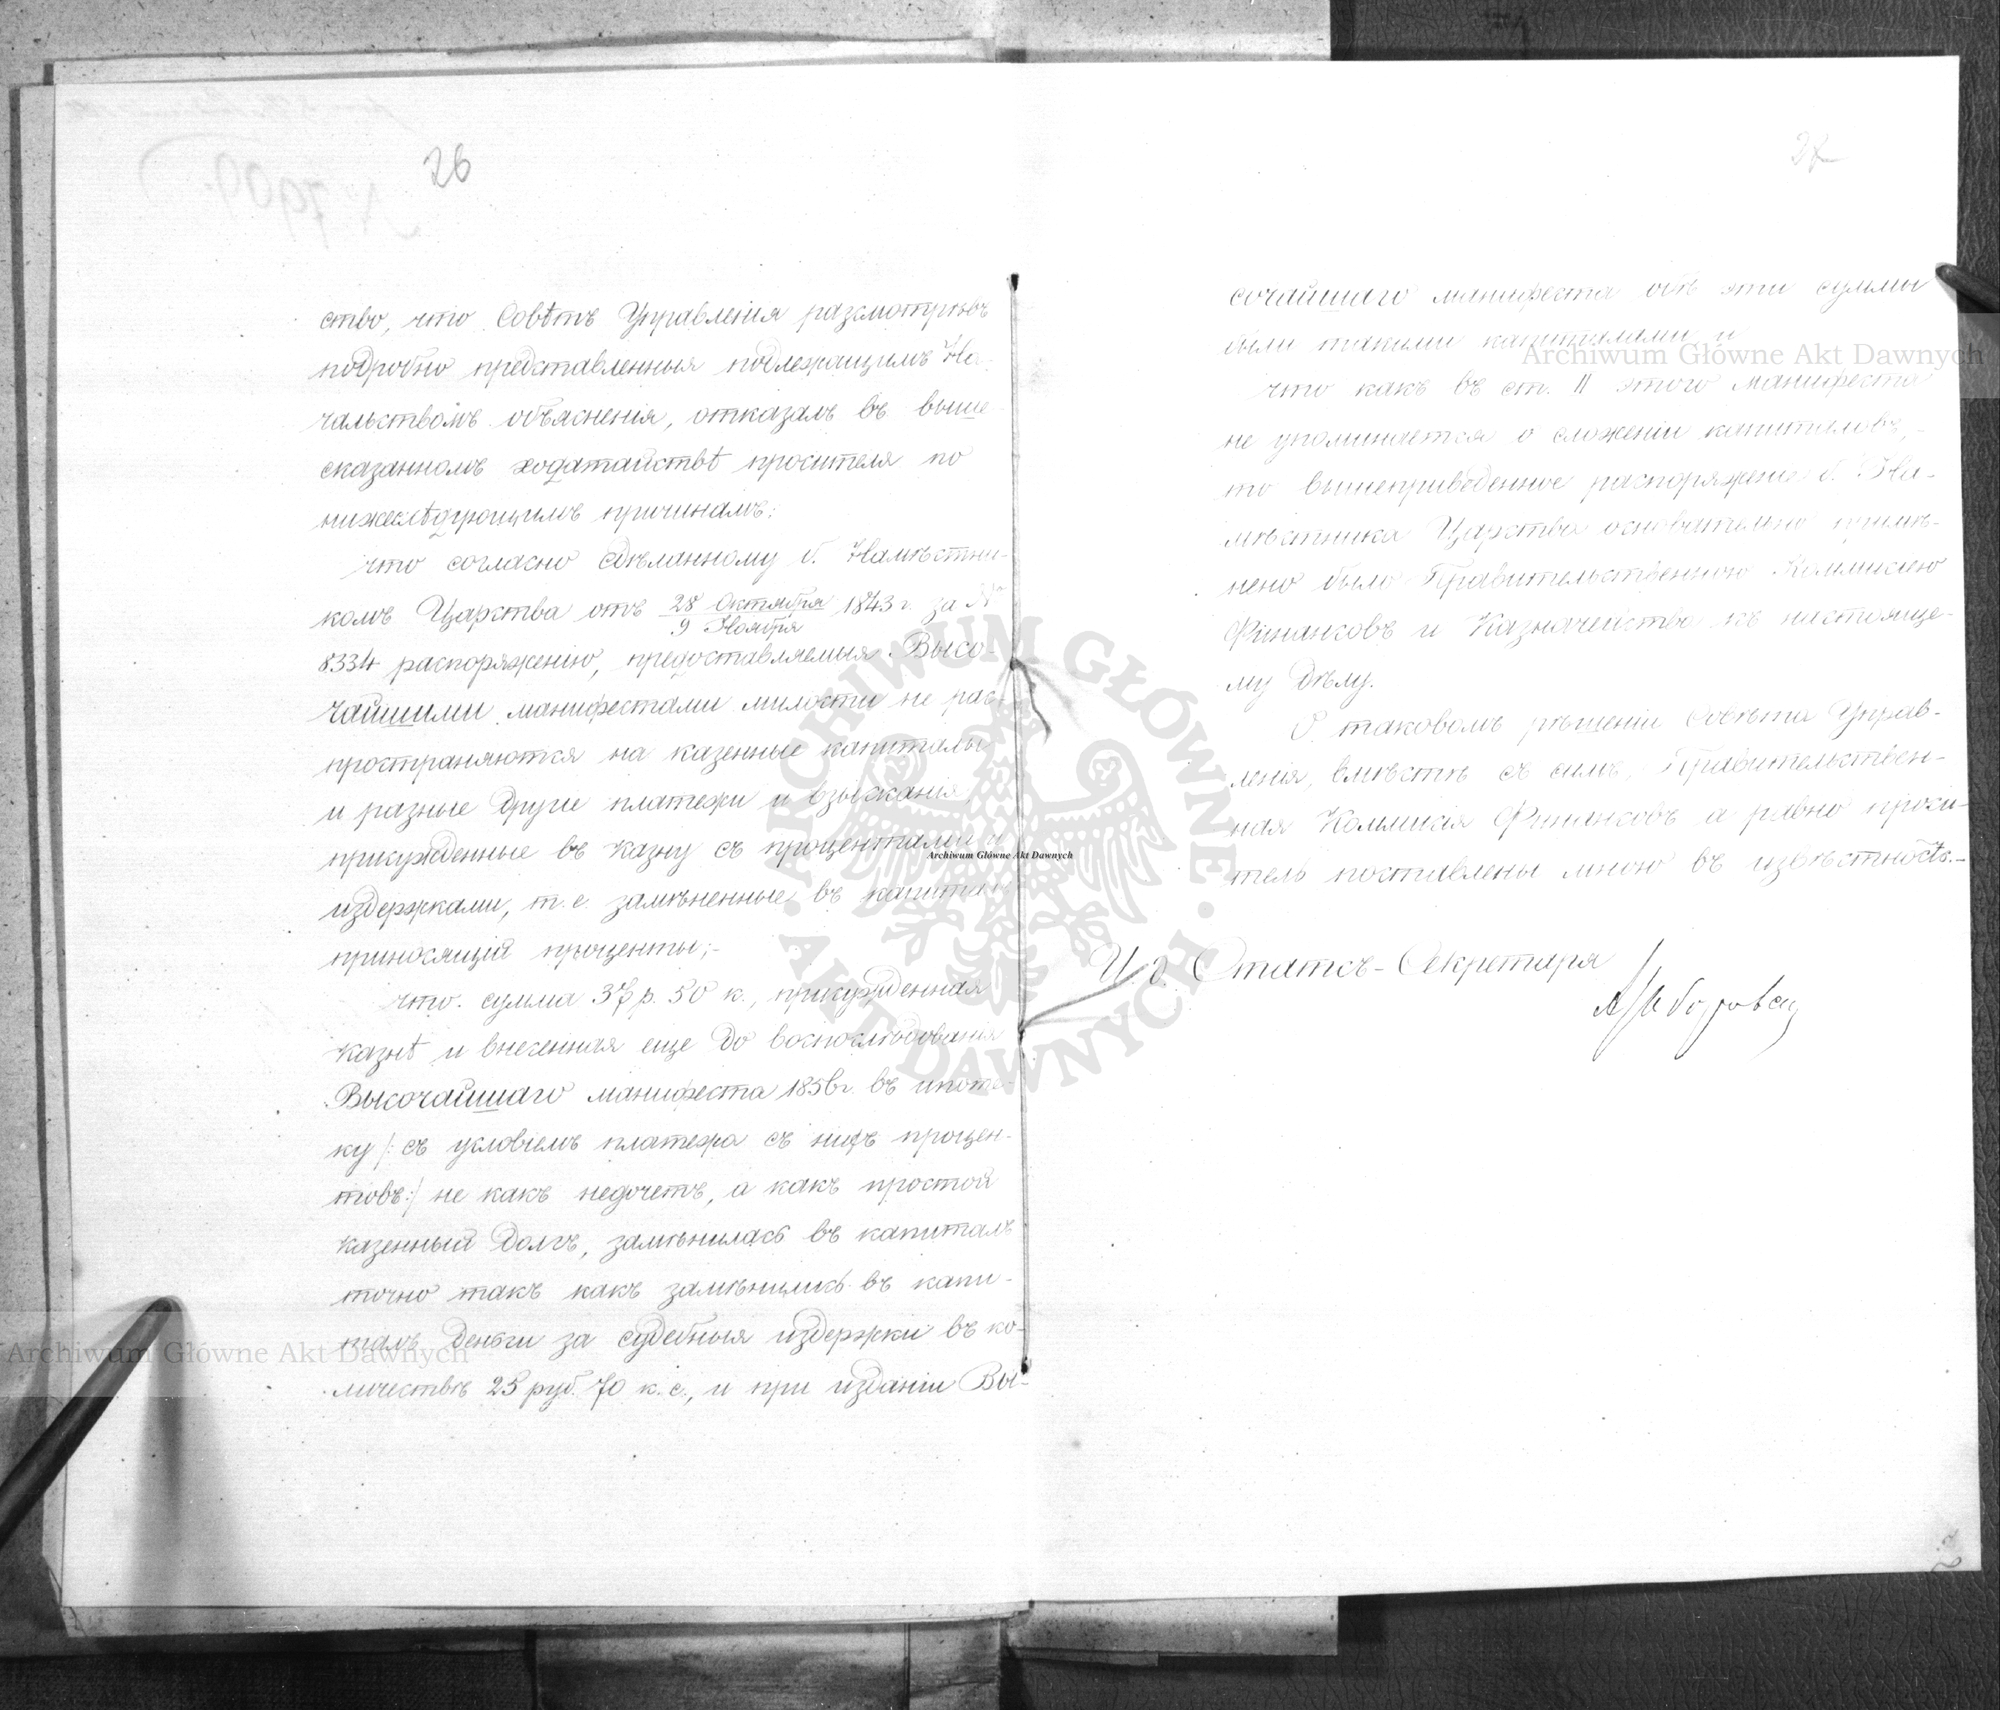 26
ство, что Совѣтъ Управленія разсмотрѣвъ
подробно представленныя подлежащимъ На-
чальствомъ объясненія, отказалъ въ выше
сказанномъ ходатайствѣ просителя по
нижеслѣдующимъ причинамъ:
что согласно сдѣланному б. Намѣстни-
комъ Царства отъ 28 Октября / 9 Ноября 1843 г. за №
8334 распоряженію, предоставляемыя Высо-
чайшими манифестами милости не рас-
пространяются на казенные капиталы
и разные другіе платежи и взысканія,
присужденные въ казну съ процентами и
издержками, т. е. замѣненные въ капиталы
приносящія проценты;-
что сумма 37 р. 50 к., присужденная
казнѣ и внесенная еще до воспослѣдованія
Высочайшаго манифеста 1856 г. въ ипоте-
ку /: съ условіемъ платежа съ нихъ процен-
товъ:/ не какъ недочетъ, а какъ простой
казенный долгъ, замѣнилась въ капиталъ
точно такъ какъ замѣнились въ капи-
талъ деньги за судебныя издержки въ ко-
личествѣ 25 руб. 70 к. с., и при изданіи Вы-
27
сочайшаго манифеста обѣ эти суммы
были такими капиталами и
что какъ въ ст. II этого манифеста
не упоминается о сложеніи капиталовъ,-
то вышеприведенное распоряженіе б. На-
мѣстника Царства основательно примѣ-
нено было Правительственною Коммисіею
Финансовъ и Казначейства къ настояще-
му дѣлу.
О таковомъ рѣшеніи Совѣта Управ-
ленія, вмѣстѣ съ симъ, Правительствен-
ная Коммисія Финансовъ а равно проси-
тель поставлены мною въ извѣстность.-
И. д. Статсъ-Секретаря
№ 7909.
Archiwum Główne Akt Dawnych
Archiwum Główne Akt Dawnych
Archiwum Główne Akt Dawnych
ARCHIWUM GŁÓWNE
AKT DAWNYCH